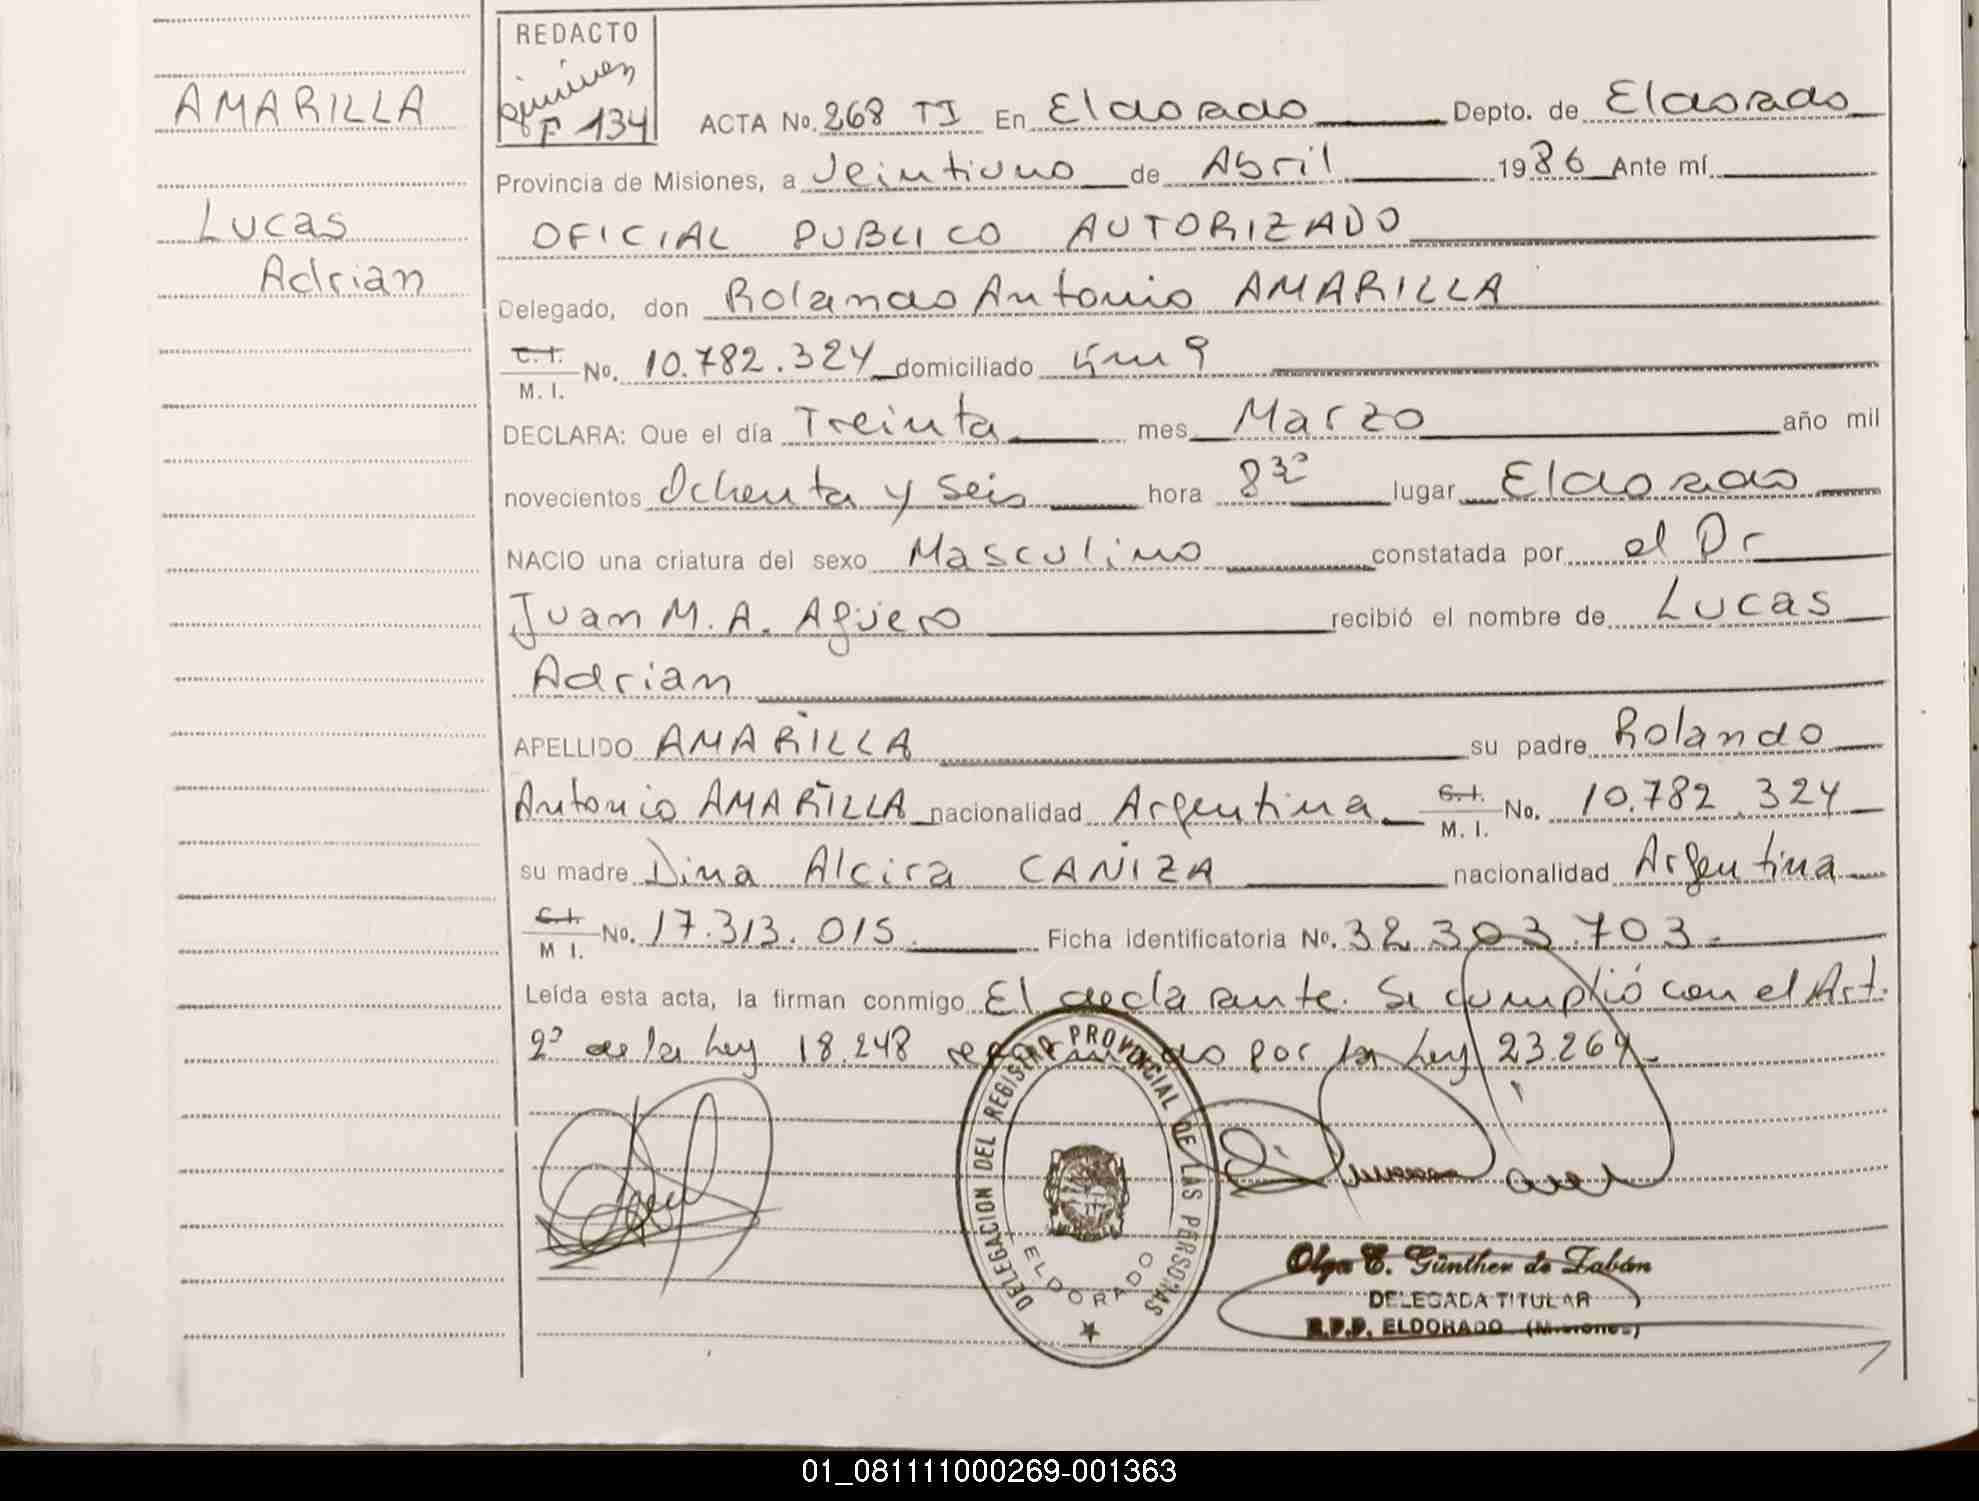 AMARILLA
Lucas
Adrian
REDACTO
F 134
ACTA No. 268 TI En Eldorado Depto. de Eldorado
Provincia de Misiones, a Veintiuno de Abril 1986 Ante mí
OFICIAL PUBLICO AUTORIZADO
Delegado, don Rolando Antonio AMARILLA
C. I. / M. I. No. 10.782.324 domiciliado Km 9
DECLARA: Que el día Treinta mes Marzo año mil
novecientos Ochenta y seis hora 8 30 lugar Eldorado
NACIO una criatura del sexo Masculino constatada por el Dr
Juan M. A. Agüero recibió el nombre de Lucas
Adrian
APELLIDO AMARILLA su padre Rolando
Antonio AMARILLA nacionalidad Argentina C. I. / M. I. No. 10.782.324
su madre Dina Alcira CAÑIZA nacionalidad Argentina
C. I. / M I. No. 17.313.015. Ficha identificatoria No. 32.303.703.
Leída esta acta, la firman conmigo El declarante. Se cumplió con el Art.
2º de la Ley 18.248 por la Ley 23.264.-
DELEGACION DEL REGISTRO PROVINCIAL DE LAS PERSONAS
ELDORADO
Olga E. Günther de Zabán
DELEGADA TITULAR
R.P.P. ELDORADO (Misiones)
01_081111000269-001363